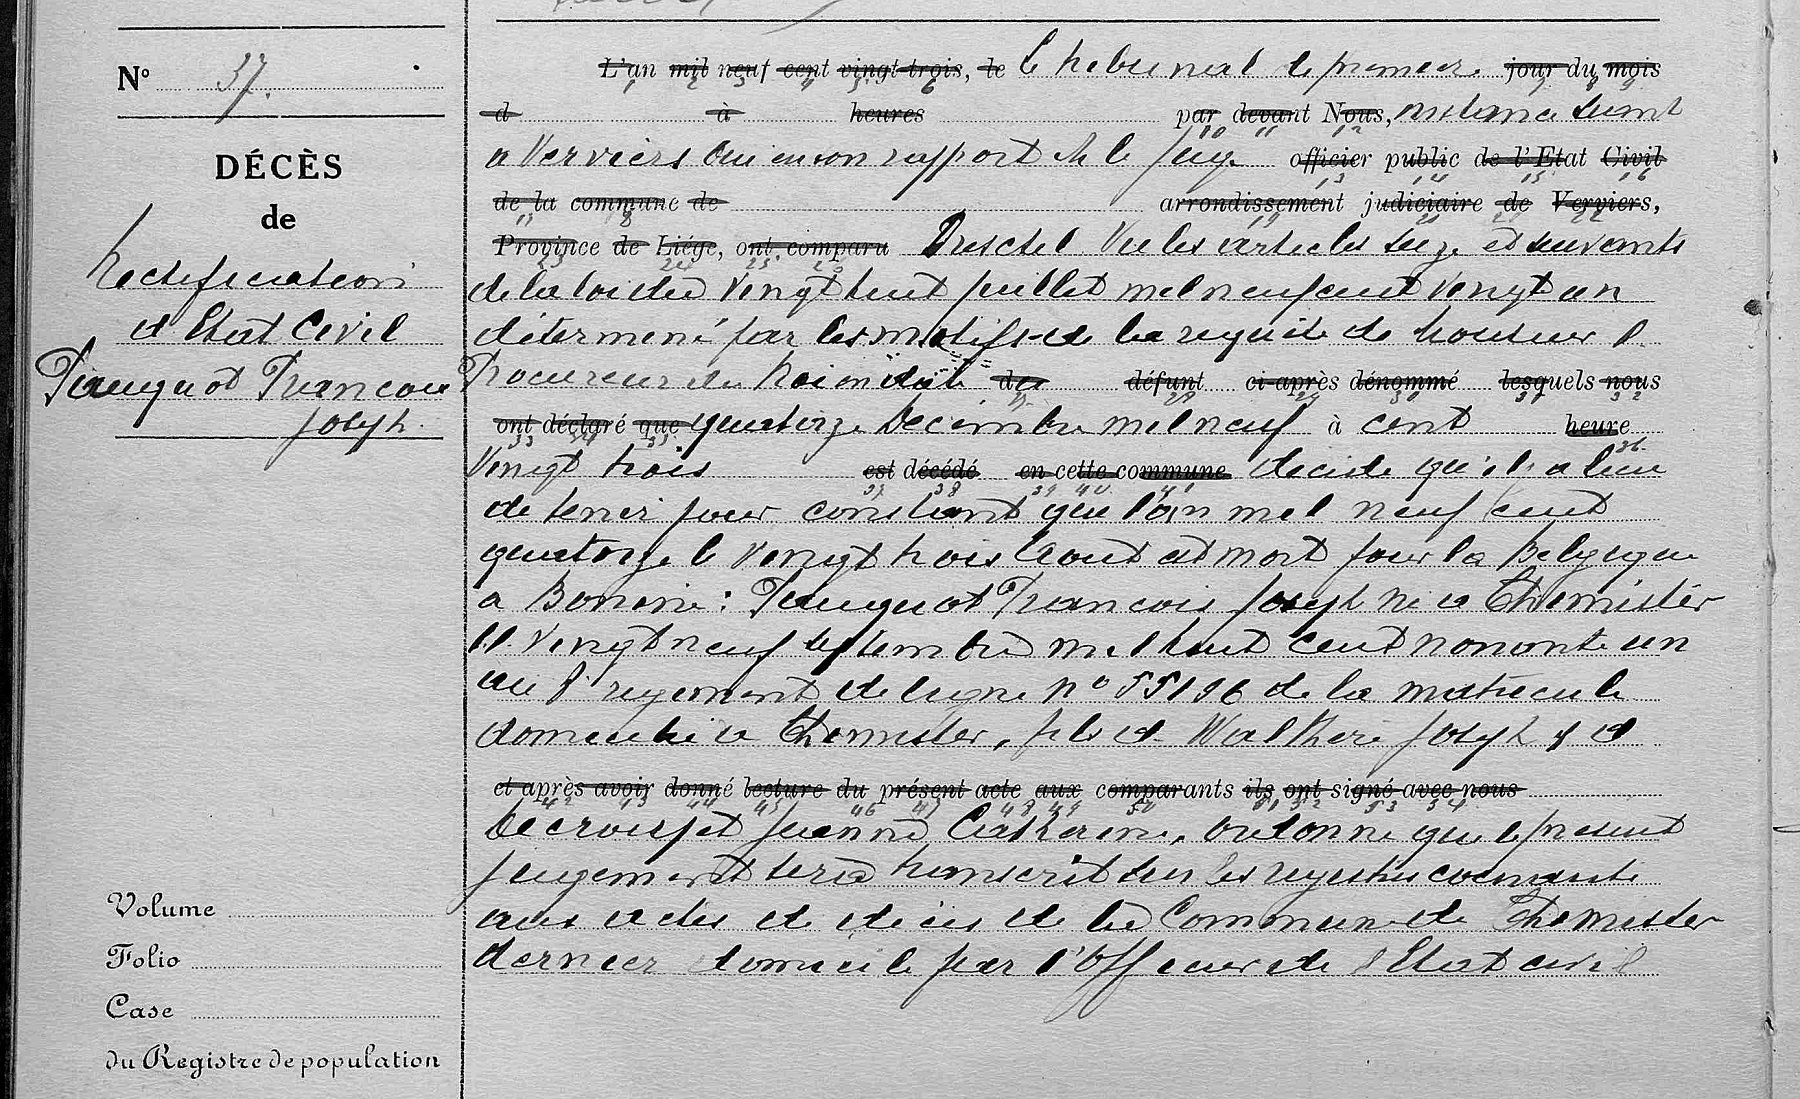 N° 37.
DÉCÈS
de
Rectification
d'Etat Civil
Pauquot Francois
Joseph.
Volume
Folio
Case
du Registre de population
L'an mil neuf cent vingt-trois, le Le tribunal de premiere jour du mois
d à heures par devant Nous, instance seant
a Verviers Oui en son rapport M le Juge officier public de l'Etat Civil
de la commune de arrondissement judiciaire de Verviers,
Province de Liége, ont comparu Vu les articles seize et suivants
de la loi du Vingt huit juillet mil neuf cent Vingt un
déterminé par les motifs de la requete de Monsieur le
Procureur du Roi en date du défunt ci-après dénommé lesquels nous
ont déclaré que quatorze Decembre mil neuf à cent heure
Vingt trois est décédé en cette commune decide qu'il y a lieu
de tenir pour constant que l'an mil neuf cent
quatorze le Vingt trois Aout est mort pour la Belgique
a Bonine : Pauquot Francois Joseph né a Thimister
le Vingt neuf septembre mil huit cent nonante un
au 8e regiment de ligne n° 55196 de la matricule
domicilié a Thimister, fils de Walthere Joseph & de
et après avoir donné lecture du présent acte aux comparants ils ont signé avec nous
Decroupet Jeanne Catherine, ordonne que le present
jugement sera transcrit sur les registres courants
aux actes de décès de la Commune de Thimister
dernier domicile par l'Officier de l'Etat civil